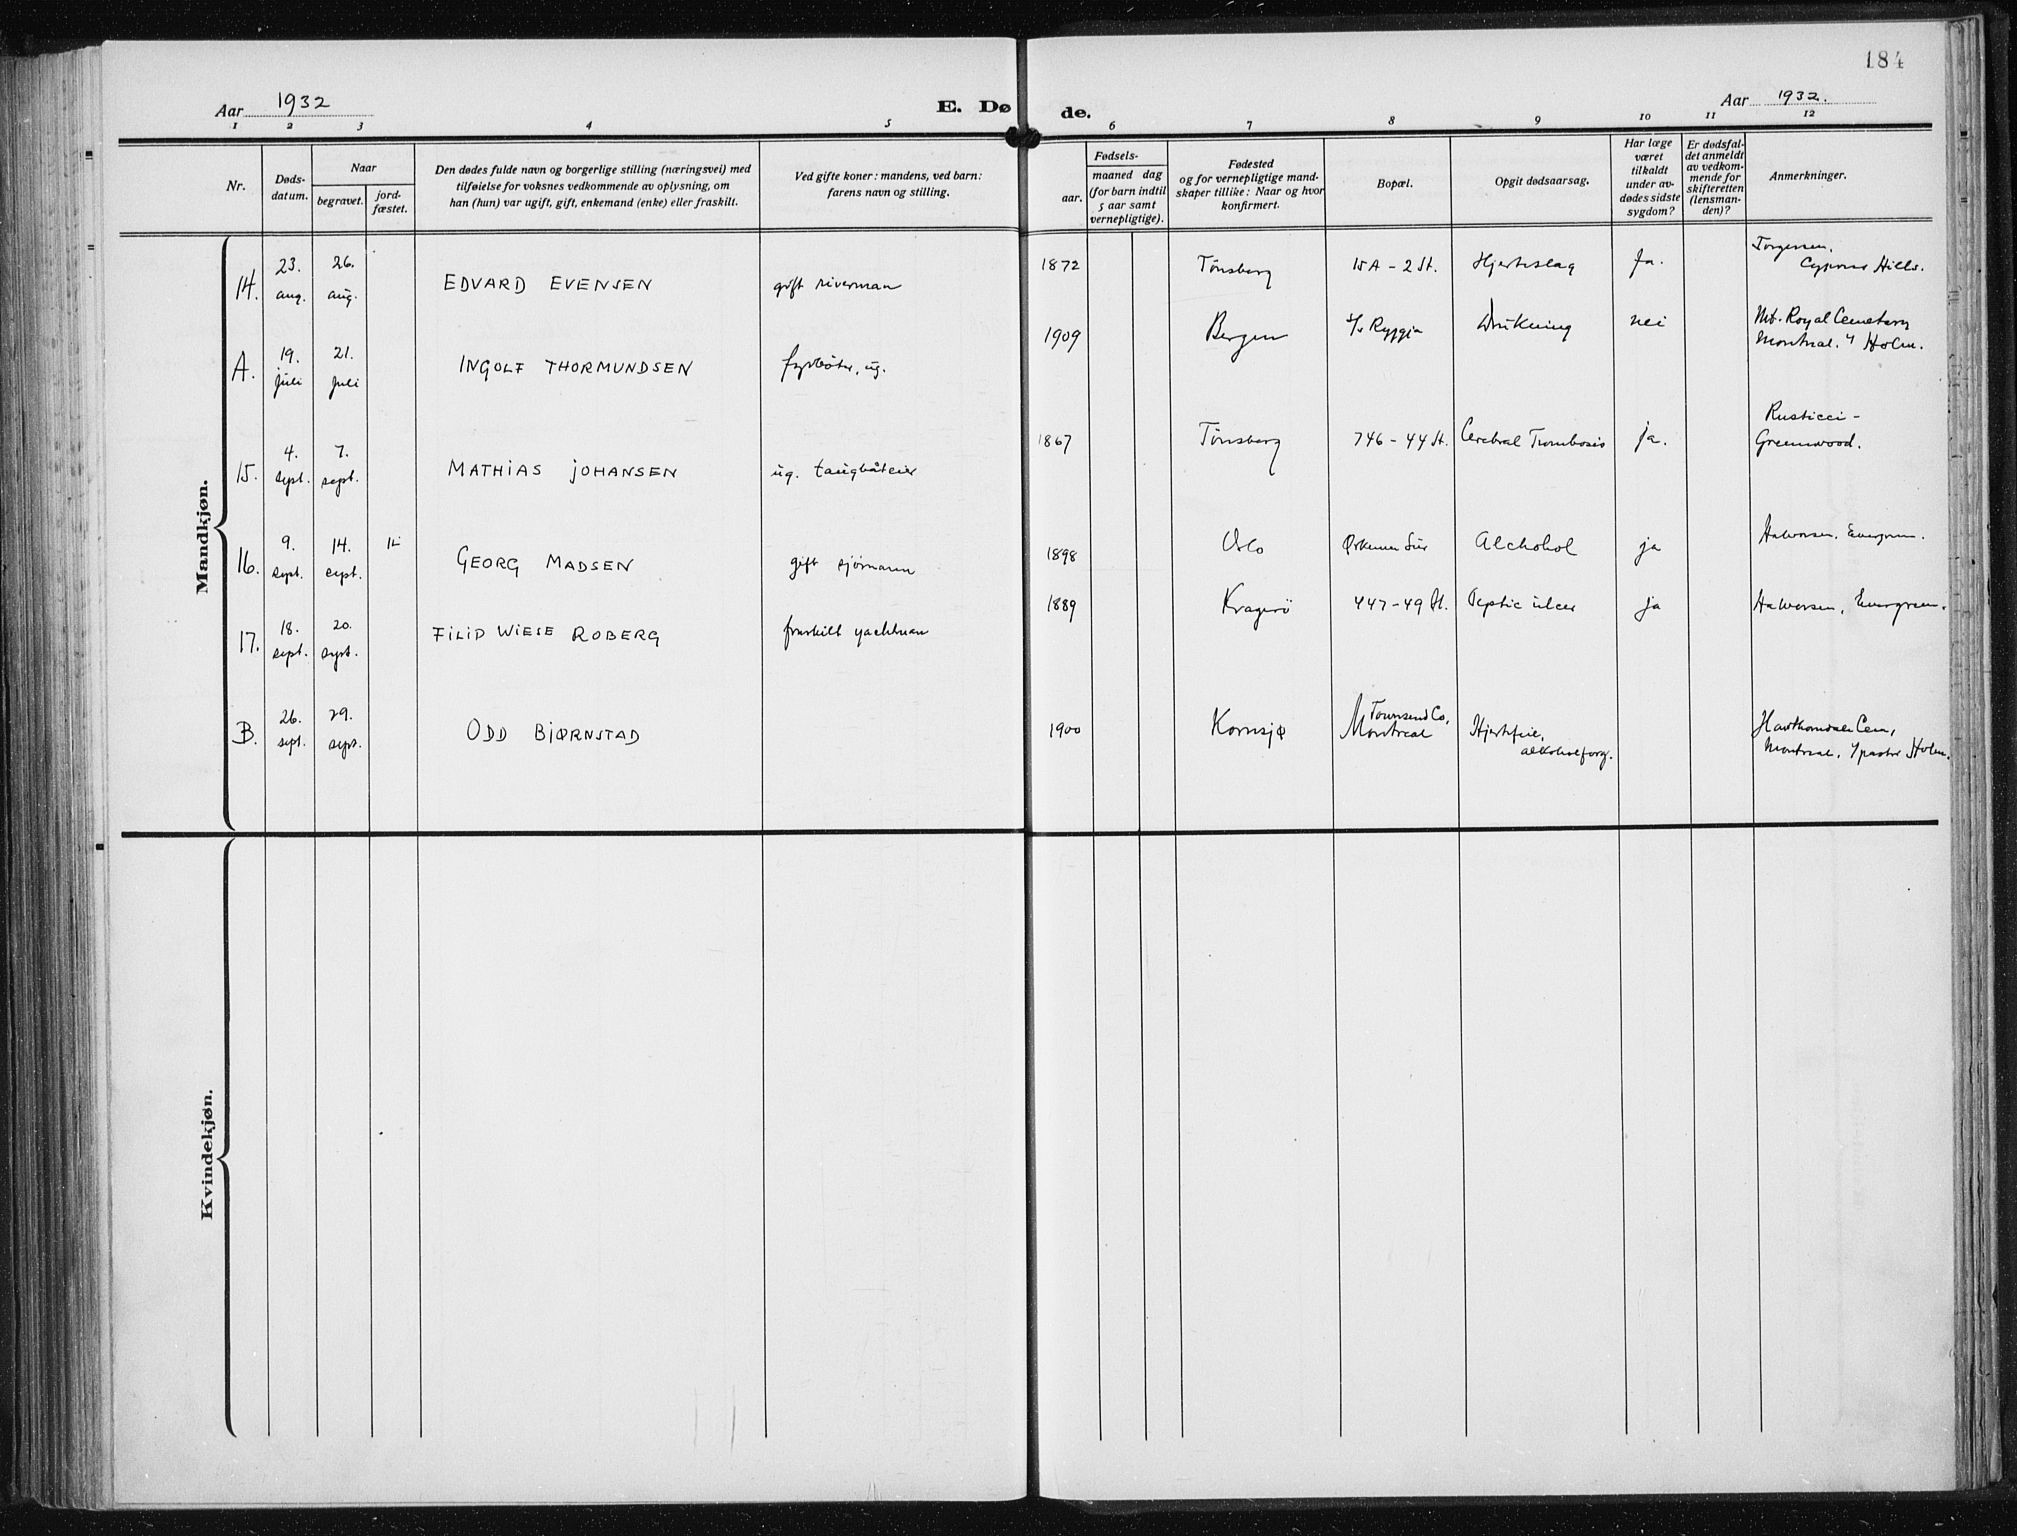 184
Aar 1932
E. Døde.
Aar 1932.
1 2 3 4 5 6 7 8 9 10 11 12
Nr.
Døds-
datum.
Naar
begravet.
jord-
fæstet.
Den dødes fulde navn og borgerlige stilling (næringsvei) med
tilføielse for voksnes vedkommende av oplysning, om
han (hun) var ugift, gift, enkemand (enke) eller fraskilt.
Ved gifte koner: mandens, ved barn:
farens navn og stilling.
Fødsels-
aar.
maaned dag
(for barn indtil
5 aar samt
vernepligtige).
Fødested
og for vernepligtige mand-
skaper tillike: Naar og hvor
konfirmert.
Bopæl.
Opgit dødsaarsag.
Har læge
været
tilkaldt
under av-
dødes sidste
sygdom?
Er dødsfal-
det anmeldt
av vedkom-
mende for
skifteretten
(lensman-
den)?
Anmerkninger.
Mandkjøn.
14. 23. aug. 26. aug. EDVARD EVENSEN gift riverman 1872 Tönsberg 15A - 2 St. Hjerteslag Ja. Torgersen, Cypress Hills.
A. 19. juli 21. juli INGOLF THORMUNDSEN fyrbøter, ug. 1909 Bergen s/s Ryggja Drukning nei Mt. Royal Cemetery Montreal. Holm.
15. 4. sept. 7. sept. MATHIAS JOHANSEN ug. taugbåteier 1867 Tönsberg 746 - 44 St. Cerebral Trombosis ja. Rusticci - Greenwood.
16. 9. sept. 14. sept. GEORG MADSEN gift sjömann 1898 Oslo Alchohol ja Halvorsen, Evergreen.
17. 18. sept. 20. sept. FILIP WIESE ROBERG fraskilt yachtman 1889 Kragerö 447 - 49 St. Peptic ulcer ja Halvorsen, Evergreen.
B. 26. sept. 29. sept. ODD BJØRNSTAD 1900 Kornsjø Townsend Co, Montreal Hjertefeil, alkoholforg. Hawthorndale Cem, Montreal, pastor Holm.
Kvindekjøn.